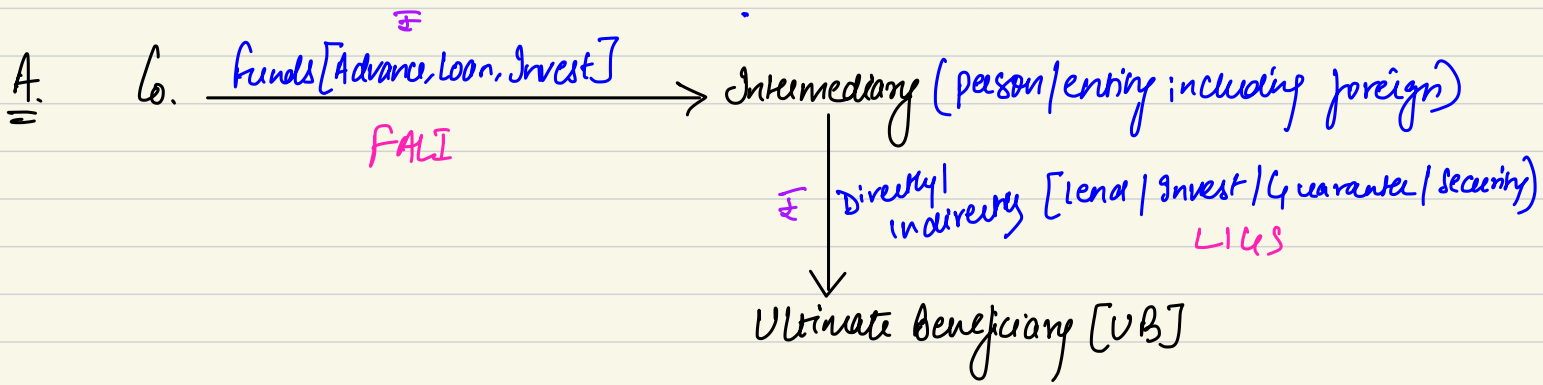 ₹
A. Co. Funds [Advance, Loan, Invest] Intermediary (person/entity including foreign)
FALI
₹ Directly/ indirectly [lend / Invest / Guarantee / Security)
LIGS
Ultimate Beneficiary [UB]